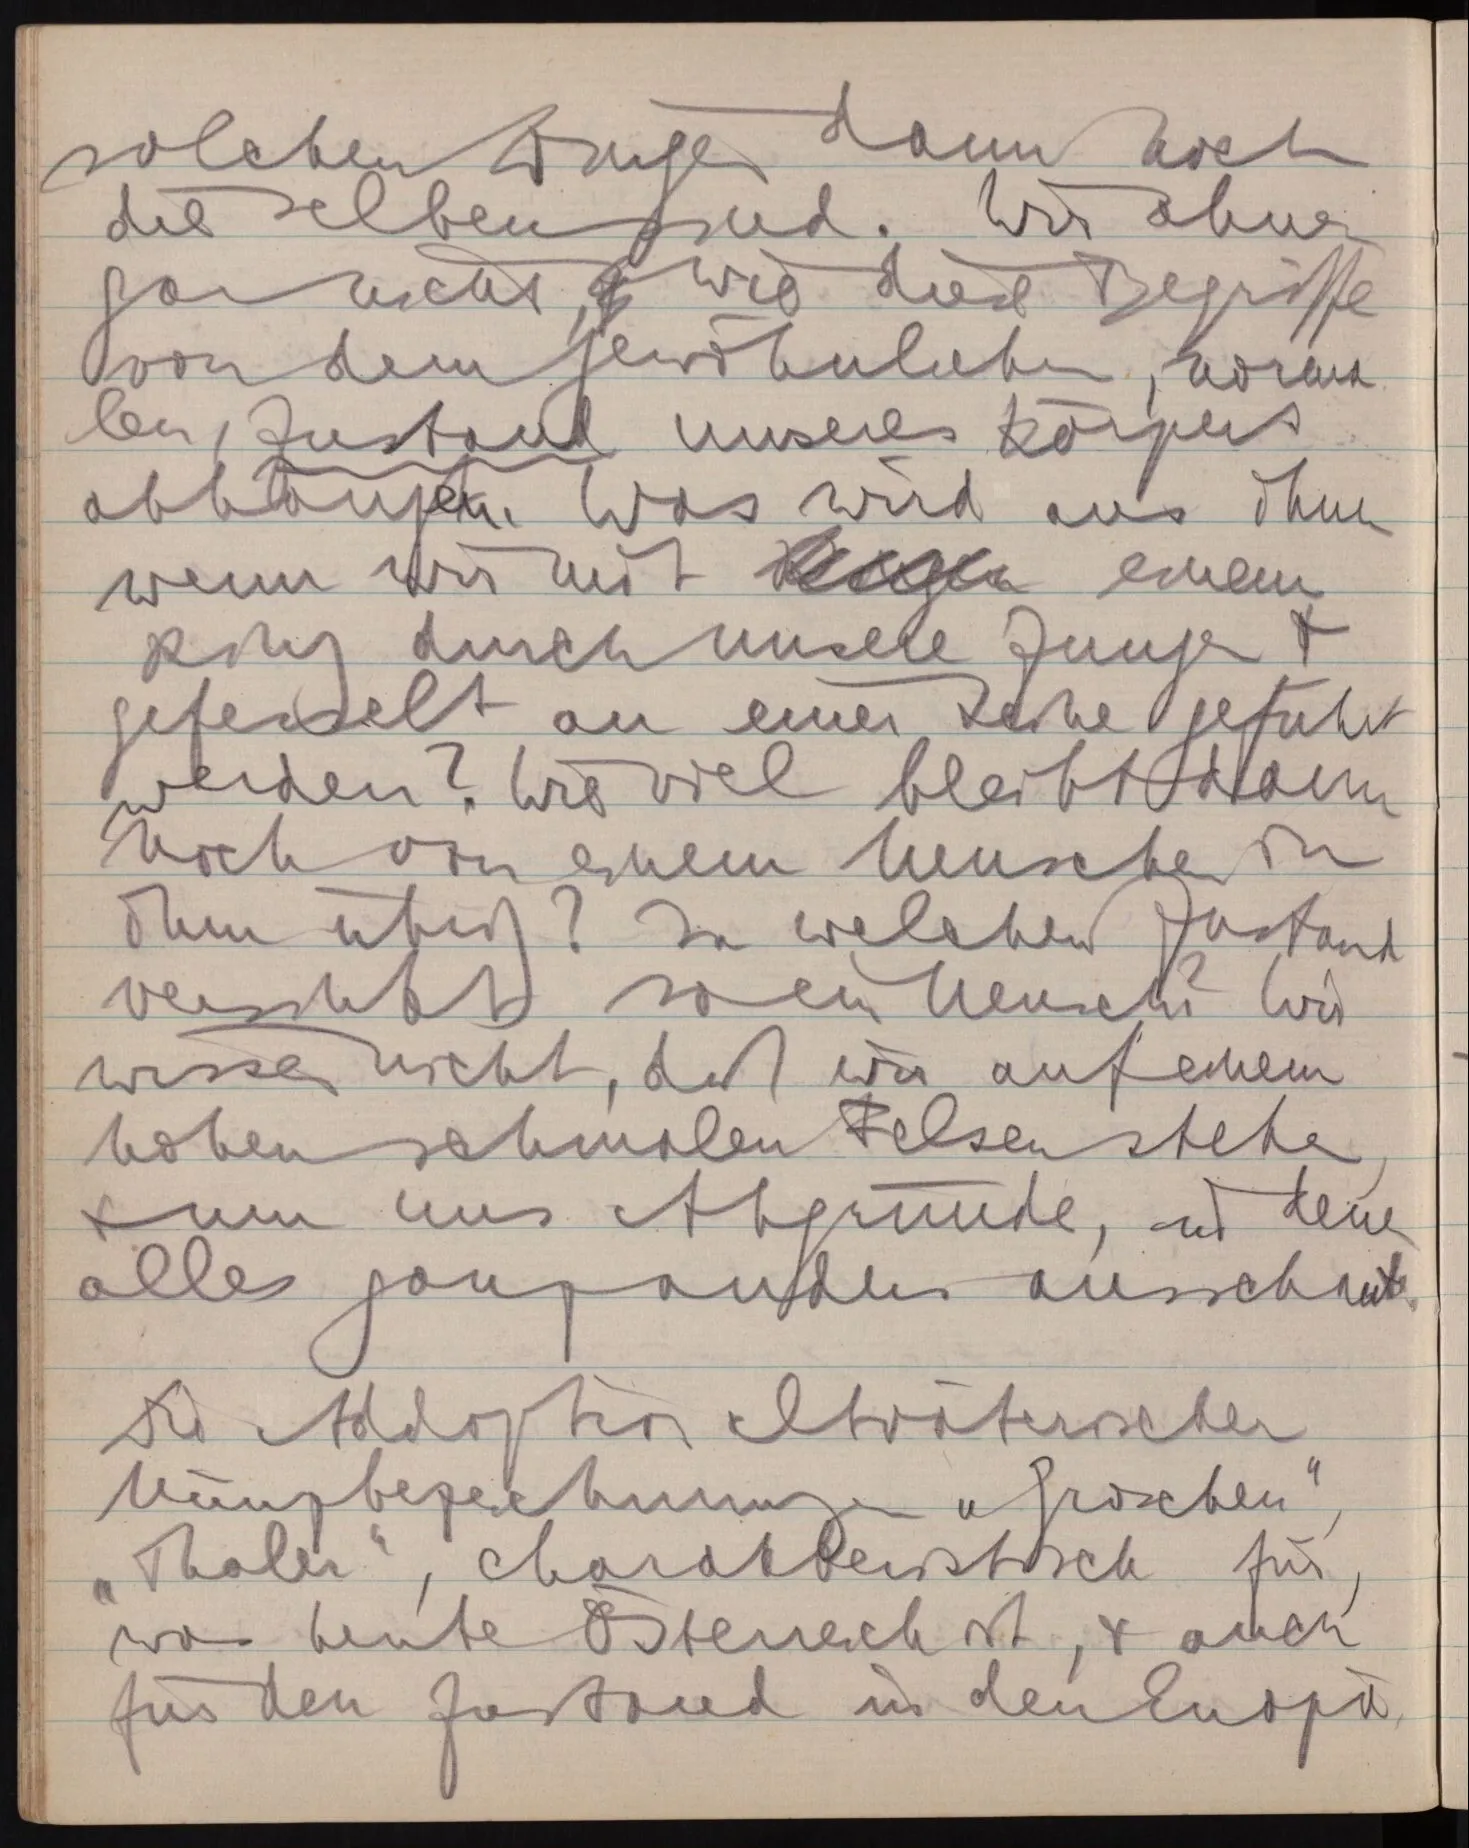 solchen Dingen dann noch
dieselben sind. Wir ahnen
gar nichts, wie diese Begriffe
von dem gewöhnlichen, norma
len, Zustand unseres Körpers
abhängen. Was wird aus ihnen
wenn wir mit einem
Ring durch unsere Zunge &
gefesselt an einer Leine geführt
werden? Wie viel bleibt dann
noch von einem Menschen in
ihm übrig? In welchen Zustand
versinkt so ein Mensch? Wir
wissen nicht, daß wir auf einem
hohen schmalen Felsen stehen,
& um uns Abgründe, in denen
alles ganz anders ausschaut.
Die Addoption altväterischer
Münzbezeichnungen „Groschen“,
„Thaler“, charakteristisch für,
was heute Österreich ist, & auch
für den Zustand in den Europä